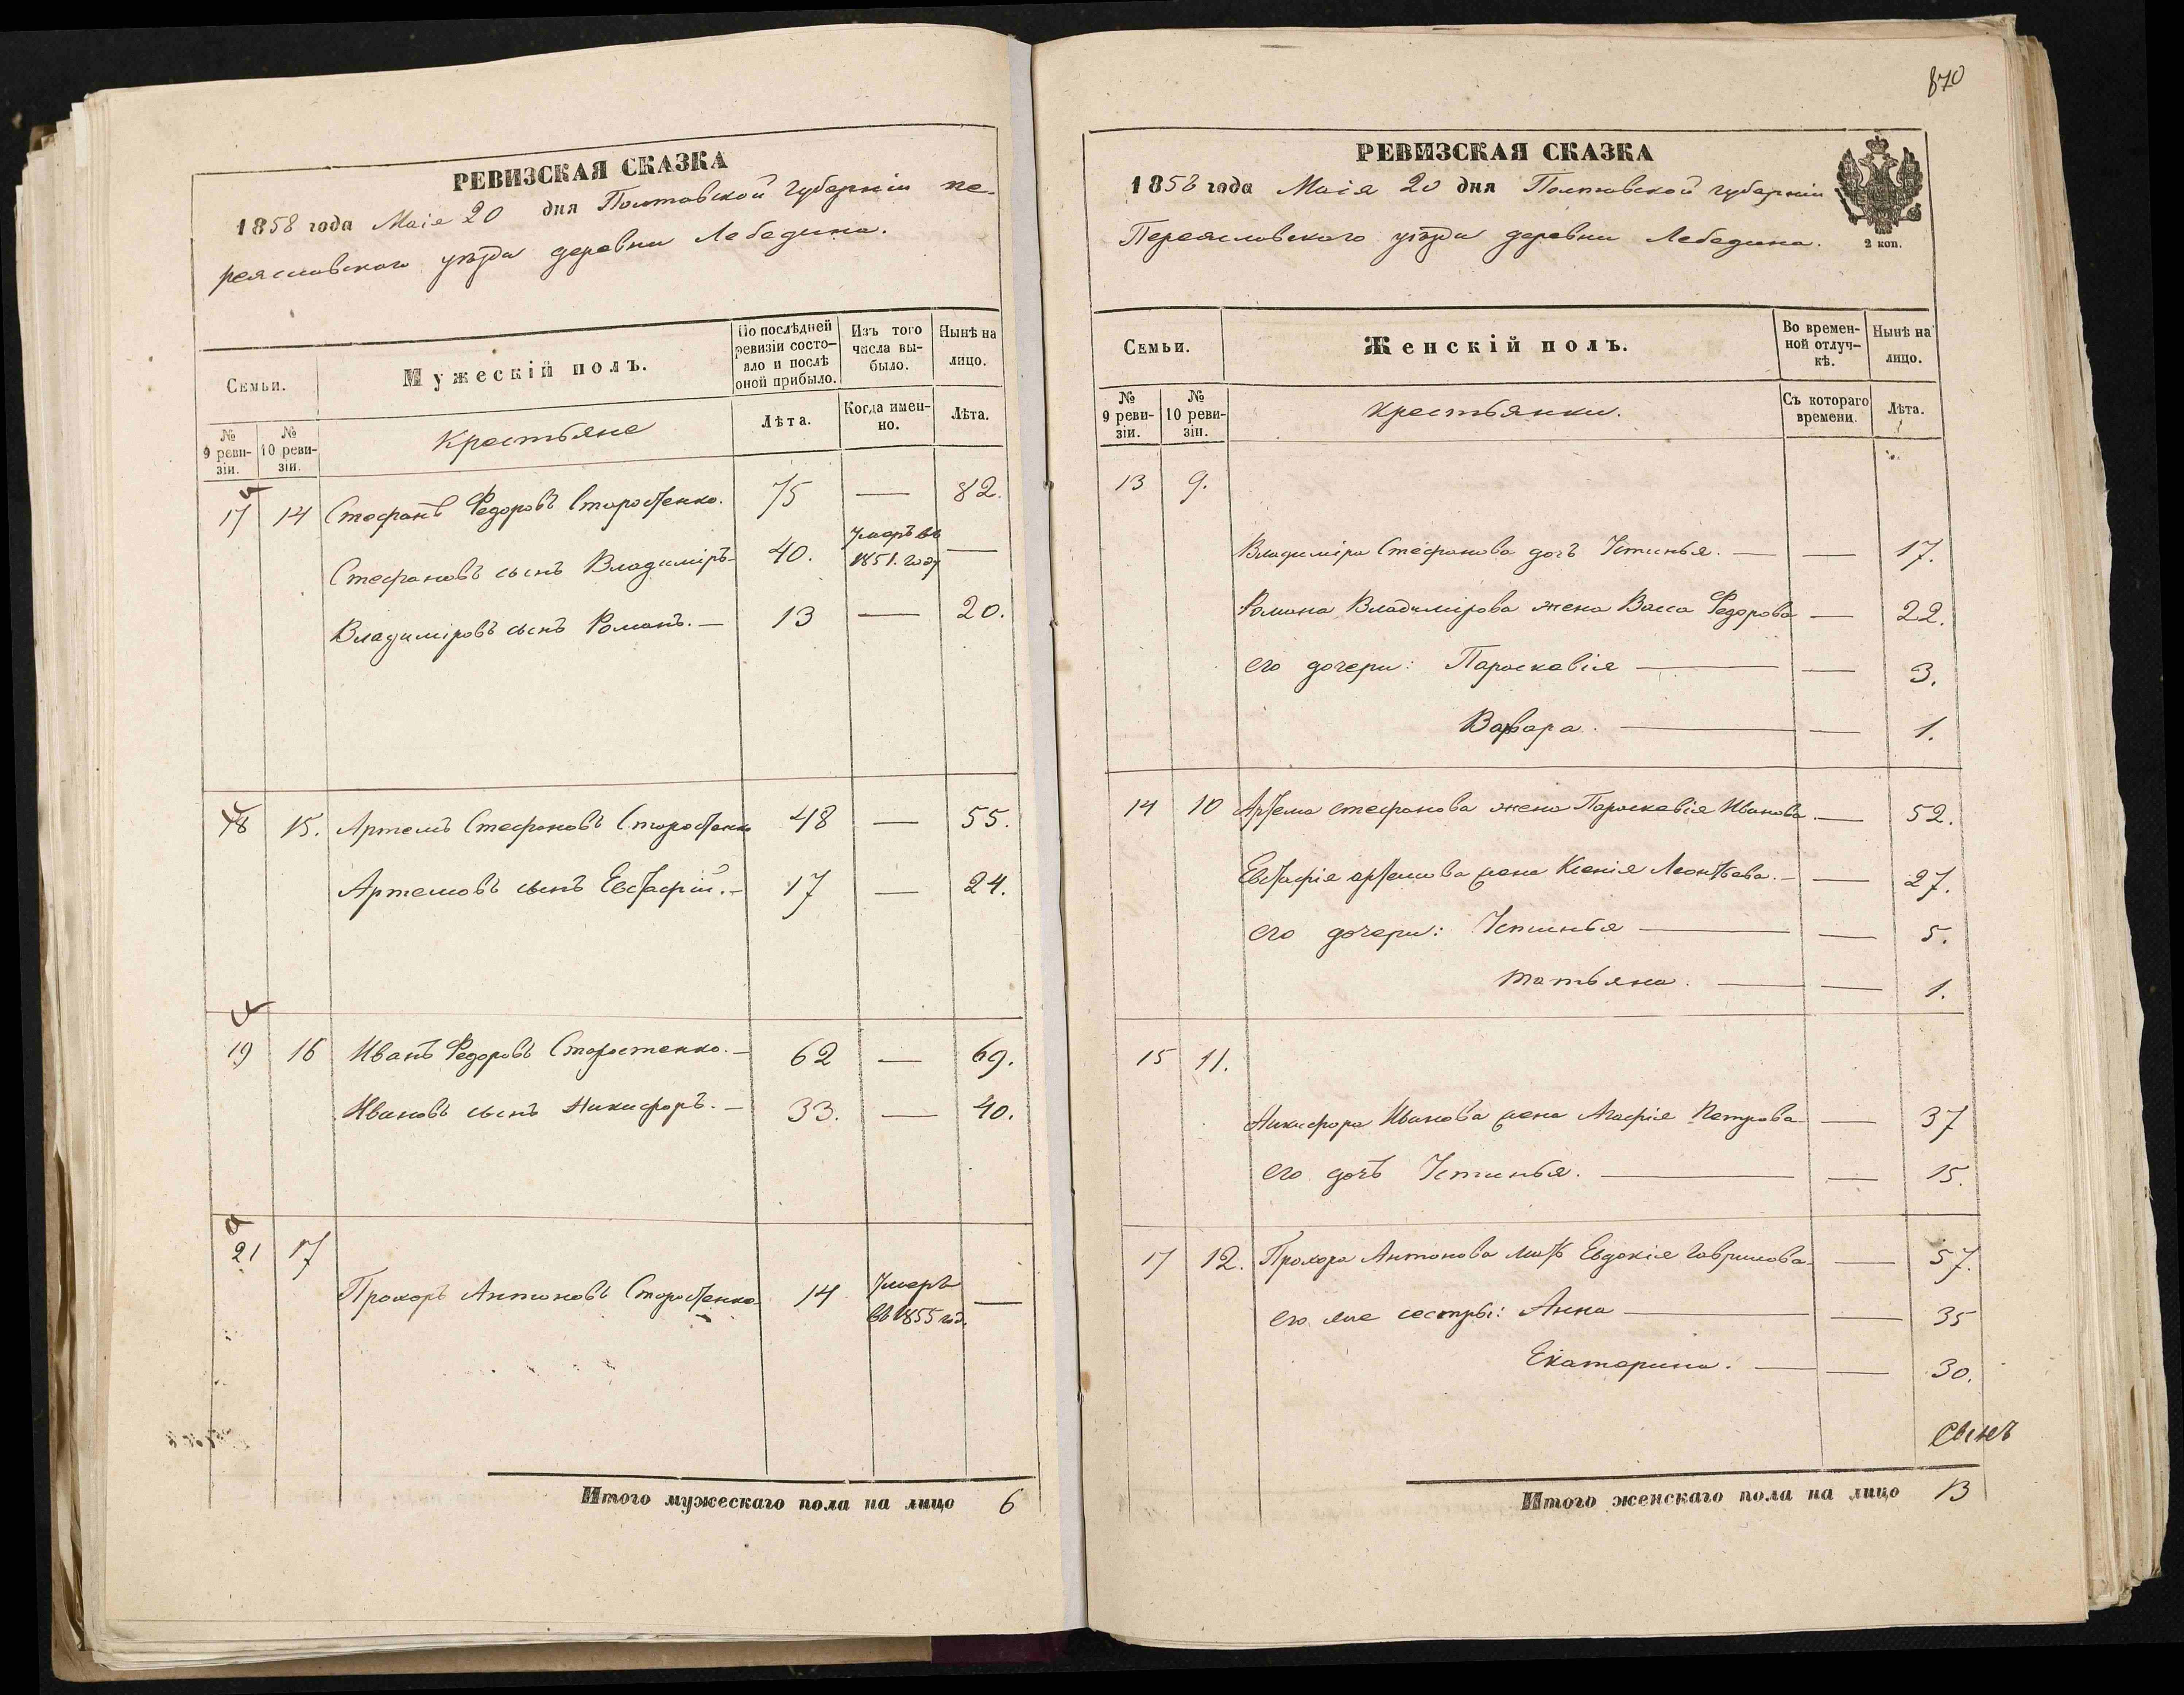 РЕВИЗСКАЯ СКАЗКА
1858 года Маія 20 дня Полтавской губерніи пе-
реяславского уѣзда деревни Лебедина.
Семьи.
Мужескій полъ.
По послѣдней ревизіи состояло и послѣ оной прибыло.
Изъ того числа выбыло.
Нынѣ на лицо.
№ 9 ревизіи.
№ 10 ревизіи.
Крестьяне
Лѣта.
Когда именно.
Лѣта.
17 14 Стефанъ Федоровъ Старостенко. 75 — 82.
Стефановъ сынъ Владиміръ 40. Умеръ въ 1851. году —
Владиміровъ сынъ Романъ. — 13 — 20.
18 15. Артемъ Стефановъ Старостенко 48 — 55.
Артемовъ сынъ Евстафій. — 17 — 24.
19 16 Иванъ Федоровъ Старостенко. — 62 — 69.
Ивановъ сынъ Никифоръ. — 33. — 40.
21 17
Прохоръ Антоновъ Старостенко 14 Умеръ въ 1855 год. —
Итого мужескаго пола на лицо 6
870
РЕВИЗСКАЯ СКАЗКА
1858 года Маія 20 дня Полтавской губерніи
Переясловского уѣзда деревни Лебедина.
2 коп.
Семьи.
Женскій полъ.
Во временной отлучкѣ.
Нынѣ на лицо.
№ 9 ревизіи.
№ 10 ревизіи.
Крестьянки.
Съ котораго времени.
Лѣта.
13 9.
Владиміра Стефанова дочь Устинья. — — 17.
Романа Владимірова жена Васса Федорова — 22.
его дочери: Параскавія — — 3.
Варвара. — — 1.
14 10 Артема стефанова жена Параскавія Иванова. — 52.
Евстафія артемова жена Ксенія Леонтьева. — — 27.
его дочери: Устинья — — 5.
татьяна. — — 1.
15 11.
Никифора Иванова жена Агафія Петрова — 37
его дочь Устинья. — — 15.
17 12. Прохора Антонова мать Евдокія Гаврилова. — 57.
его же сестры: Анна — — 35
Екатерина. — — 30.
Сынъ
Итого женскаго пола на лицо 13